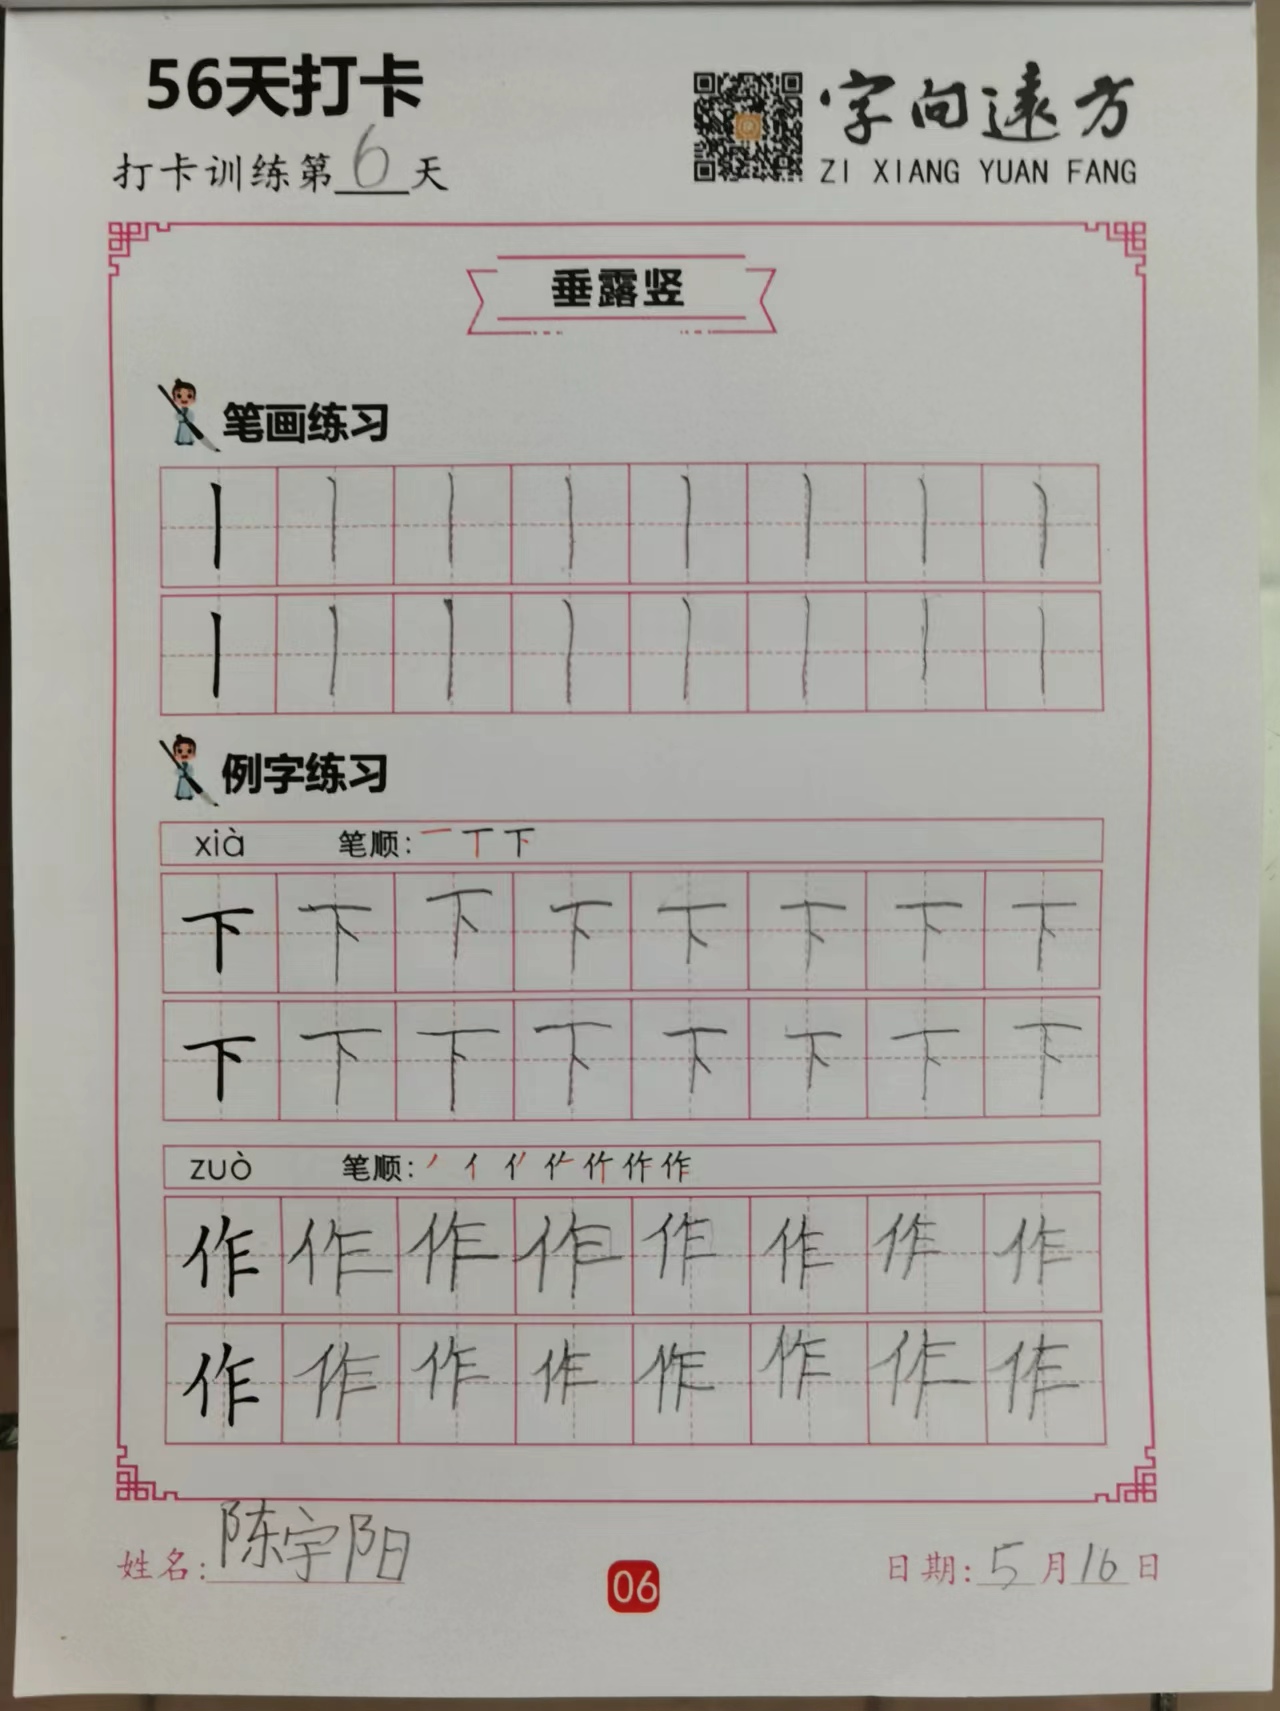 56天打卡
打卡训练第6天
字向遠方
ZI XIANG YUAN FANG
垂露竖
笔画练习
丨 丨 丨 丨 丨 丨 丨 丨
丨 丨 丨 丨 丨 丨 丨 丨
例字练习
xià 笔顺: 一 丅 下
下 下 下 下 下 下 下 下
下 下 下 下 下 下 下 下
zuò 笔顺: 丿 亻 作
作 作 作 作 作 作 作 作
作 作 作 作 作 作 作 作
姓名: 陈宇阳
06
日期: 5月16日